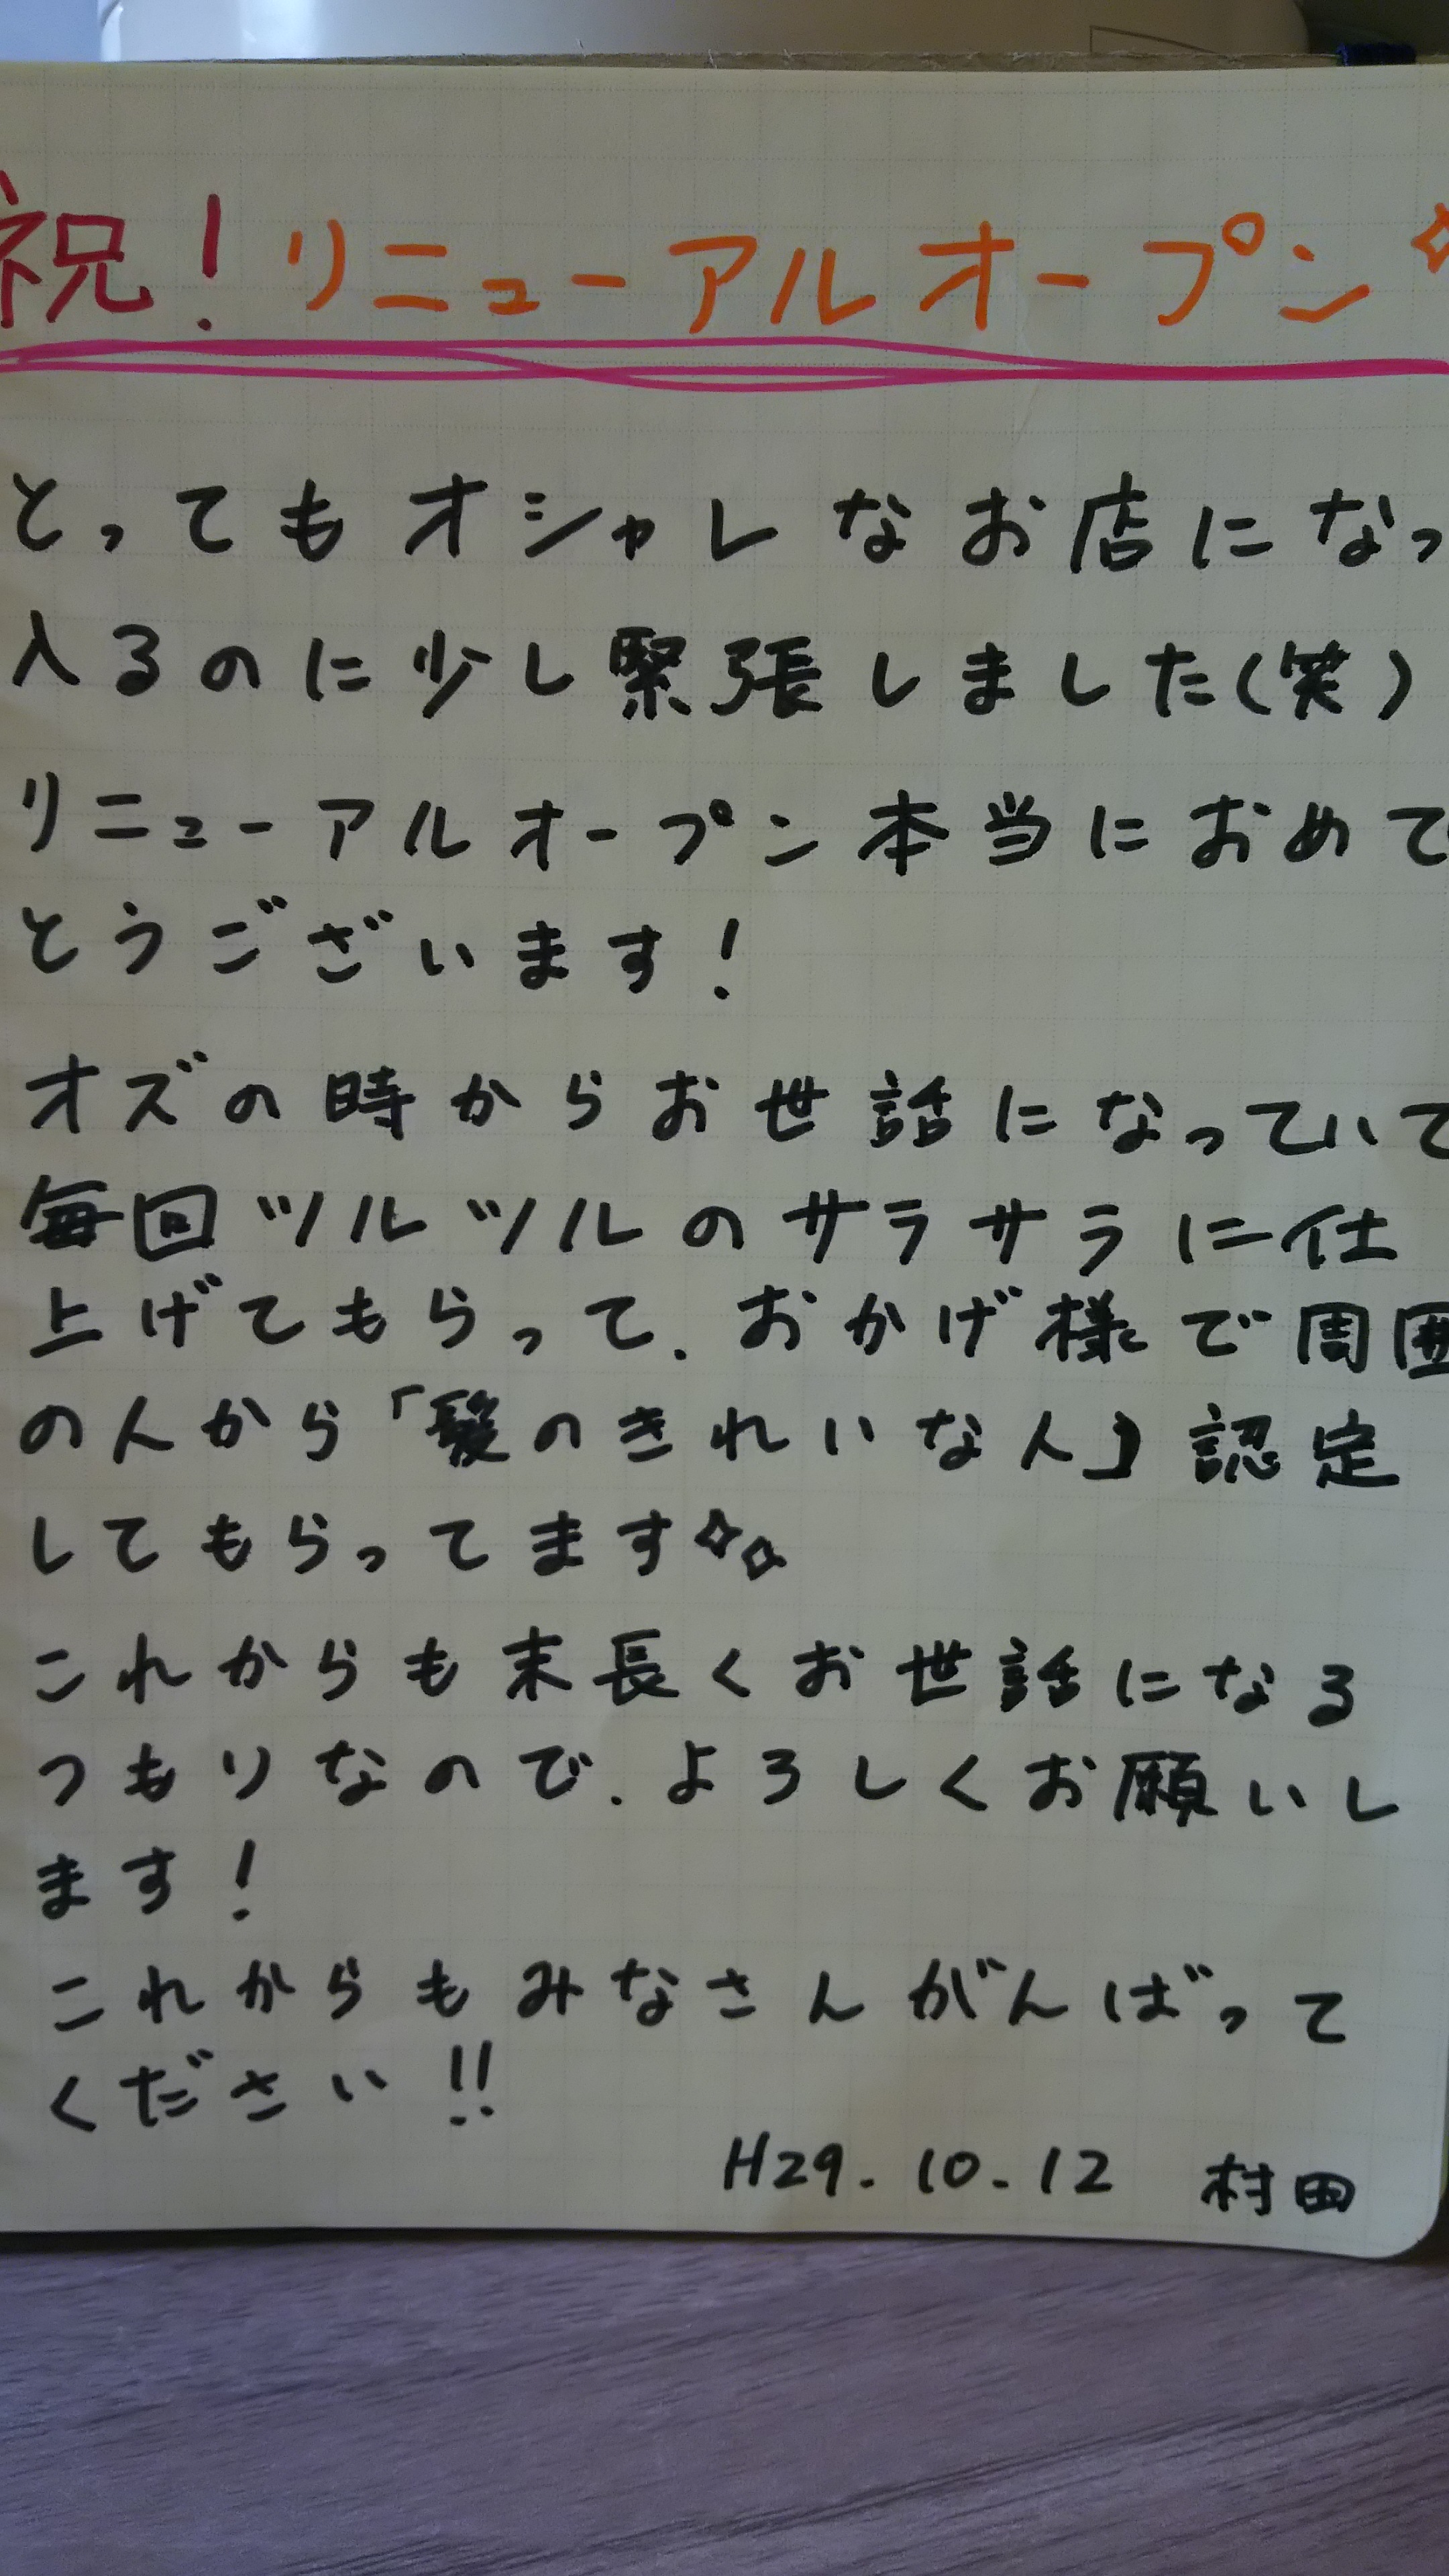 祝!リニューアルオープン
とってもオシャレなお店になっ
入るのに少し緊張しました(笑)
リニューアルオープン本当におめで
とうございます!
オズの時からお世話になっていて
毎回ツルツルのサラサラに仕
上げてもらって、おかげ様で周囲
の人から「髪のきれいな人」認定
してもらってます
これからも末長くお世話になる
つもりなので、よろしくお願いし
ます!
これからもみなさんがんばって
ください!!
H29.10.12 村田